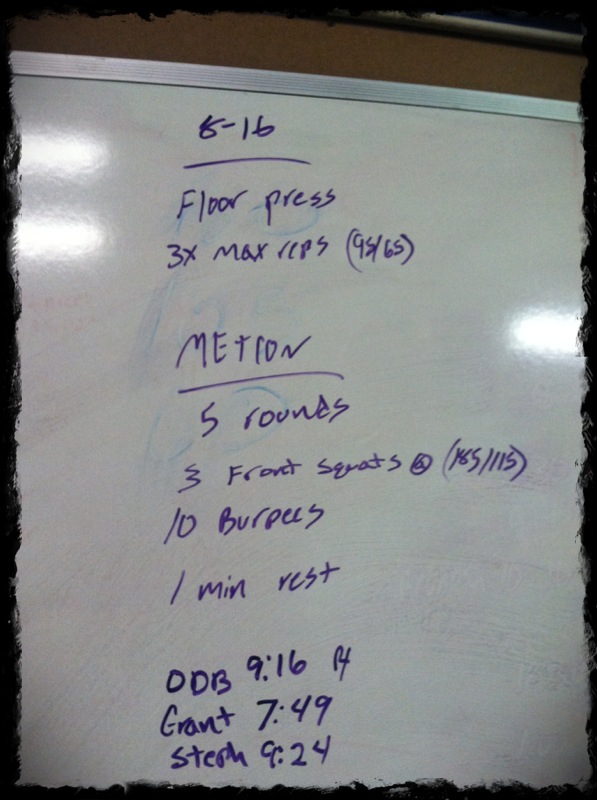 8-16
Floor press
3x Max reps (95/65)
METCON
5 rounds
3 Front Squats @ (185/115)
10 Burpees
1 min rest
ODB 9:16
Grant 7:49
Steph 9:24